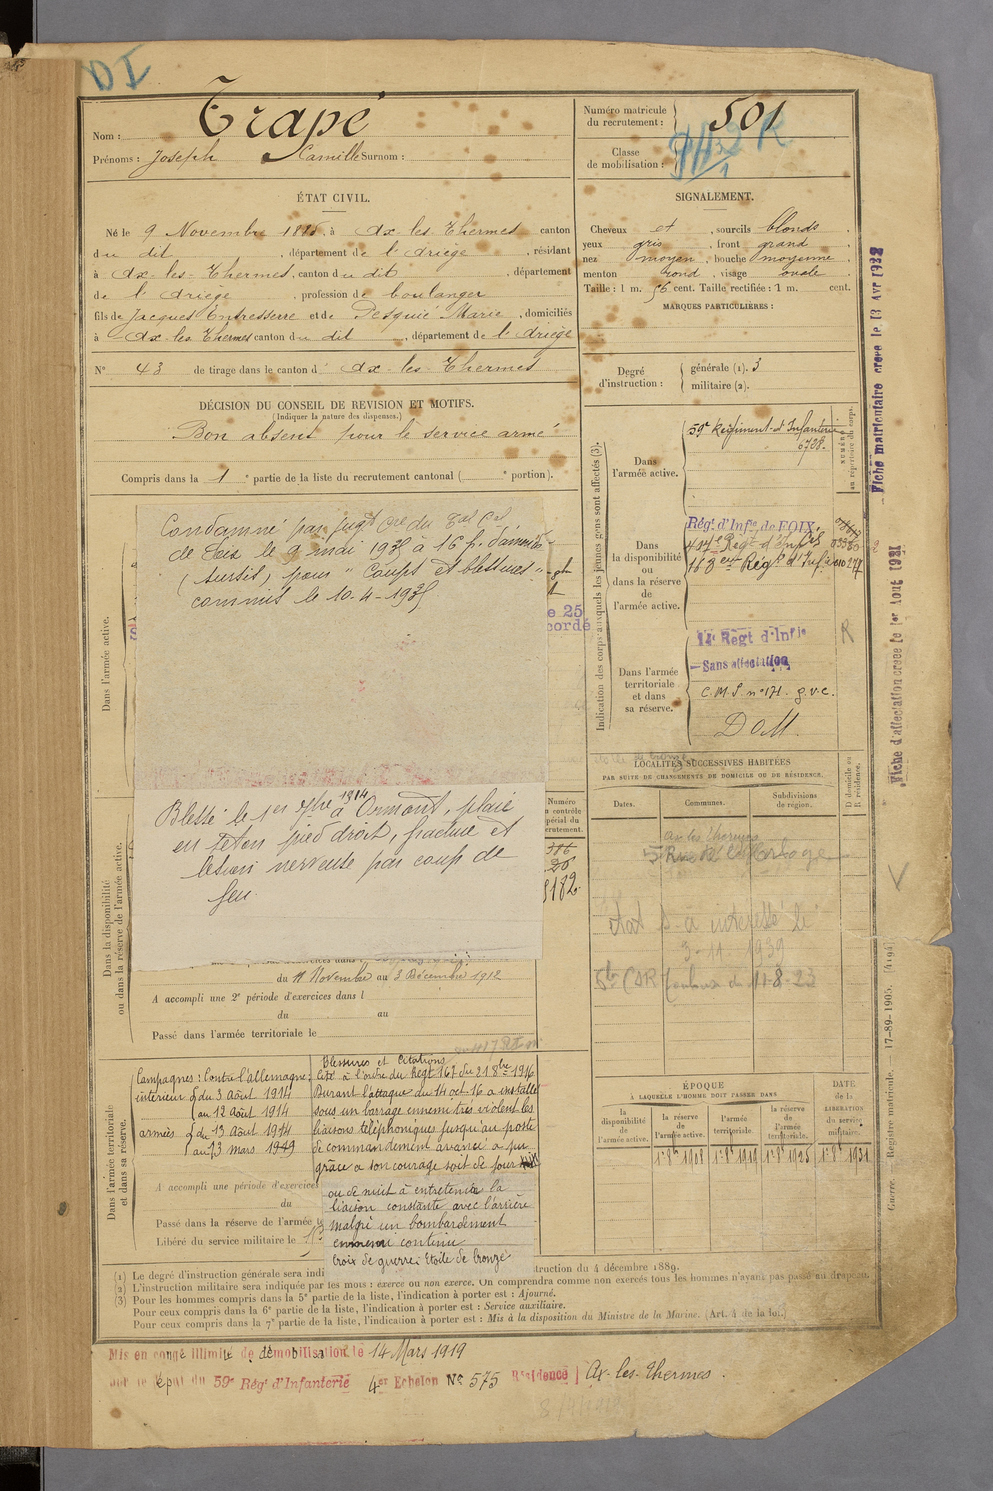 DI
Nom : Trapé
Prénoms : Joseph Camille Surnom :
Numéro matricule
du recrutement : 501
Classe
de mobilisation :
ÉTAT CIVIL.
Né le 9 Novembre à Ax-les-Thermes canton
du dit , département de l'Ariège , résidant
à Ax-les-Thermes, canton du dit , département
de l'Ariège , profession de boulanger
fils de Jacques Entresserre et de Pesquié Marie , domiciliés
à Ax les Thermes canton du dit , département de l'Ariège
N° 43 de tirage dans le canton d' Ax-les-Thermes
DÉCISION DU CONSEIL DE REVISION ET MOTIFS.
(Indiquer la nature des dispenses.)
Bon absent pour le service armé
Compris dans la 1e partie de la liste du recrutement cantonal ( e portion).
SIGNALEMENT.
Cheveux et , sourcils blonds .
yeux gris , front grand
nez moyen , bouche moyenne .
menton rond , visage ovale .
Taille : 1 m. 56 cent. Taille rectifiée : 1 m. cent.
MARQUES PARTICULIÈRES :
Degré
d'instruction :
générale (1). 3
militaire (2).
Indication des corps auxquels les jeunes gens sont affectés (3).
NUMÉRO
au répertoire du corps.
Dans
l'armée active.
59e Régiment d'Infanterie
6728.
Dans
la disponibilité
ou
dans la réserve
de
l'armée active.
Régt d'Infie de FOIX.
417e Régt d'Infie
163eme Régt d'Infie
Dans l'armée
territoriale
et dans
sa réserve.
14e Regt d'Infie
Sans affectation
C.M.S. n° 171. g.v.c.
D O M.
R
Fiche matriculaire créée le 13 Avr 1932
Fiche d'affectation créée le 1er Aout 1931
Dans l'armée active.
Condamné par jugt cre du Tal Cel
de Foix le 9 mai 1935 à 16 f. d'amende
(sursis) pour "Coups et blessures"
commis le 10-4-1935
e 25
cordé
Blessé le 1er 7bre 1914 à Ormont, plaie
en séton pied droit, fracture et
lésion nerveuse par coup de
feu.
Dans la disponibilité
ou dans la réserve de l'armée active.
Numéro
au contrôle
spécial du
recrutement.
du 11 Novembre au 3 Décembre 1912
A accompli une 2e période d'exercices dans l
du au
Passé dans l'armée territoriale le
LOCALITÉS SUCCESSIVES HABITÉES
PAR SUITE DE CHANGEMENTS DE DOMICILE OU DE RÉSIDENCE.
D domicile ou
R résidence.
Dates.
Communes.
Subdivisions
de région.
Ax les Thermes
5 Rue de l'Horloge
3-11-1939
Dans l'armée territoriale
et dans sa réserve.
Campagnes : Contre l'Allemagne
intérieur du 3 Août 1914
au 12 Août 1914
armées du 13 Août 1914
au 13 mars 1919
Blessures et Citations
Cité à l'ordre du Regt 167 du 21 8bre 1916
Durant l'attaque du 14 oct. 16 a installé
sous un barrage ennemi très violent les
liaisons téléphoniques jusqu'au poste
de commandement avancé a pu
grâce à son courage soit de jour
ou de nuit à entretenir la
liaison constante avec l'arrière
malgré un bombardement
ennemi continu
Croix de guerre : Etoile de bronze
A accompli une période d'exercices
du
Passé dans la réserve de l'armée
Libéré du service militaire le
ÉPOQUE
À LAQUELLE L'HOMME DOIT PASSER DANS
la
disponibilité
de
l'armée active.
la réserve
de
l'armée active.
l'armée
territoriale.
la réserve
de
l'armée
territoriale.
DATE
de la
LIBÉRATION
du service
militaire.
1er 8bre 1908
1er 8bre 1919
1er 8bre 1925
1er 8bre 1931
Guerre. — Registre matricule. — 17-89-1905. [4494]
(1) Le degré d'instruction générale sera indi truction du 4 décembre 1889.
(2) L'instruction militaire sera indiquée par les mots : exercé ou non exercé. On comprendra comme non exercés tous les hommes n'ayant pas passé au drapeau.
(3) Pour les hommes compris dans la 5e partie de la liste, l'indication à porter est : Ajourné.
Pour ceux compris dans la 6e partie de la liste, l'indication à porter est : Service auxiliaire.
Pour ceux compris dans la 7e partie de la liste, l'indication à porter est : Mis à la disposition du Ministre de la Marine. (Art. 4 de la loi.)
Mis en congé illimité de démobilisation le 14 Mars 1919
par le dépôt du 59e Régt d'Infanterie 4er Echelon N° 575 Résidence Ax-les-Thermes.